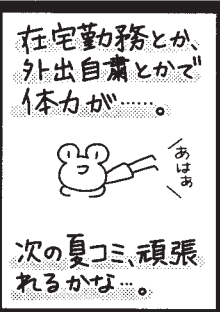 在宅勤務とか、
外出自粛とかで
体力が……。
あはぁ
次の夏コミ、頑張
れるかな…。